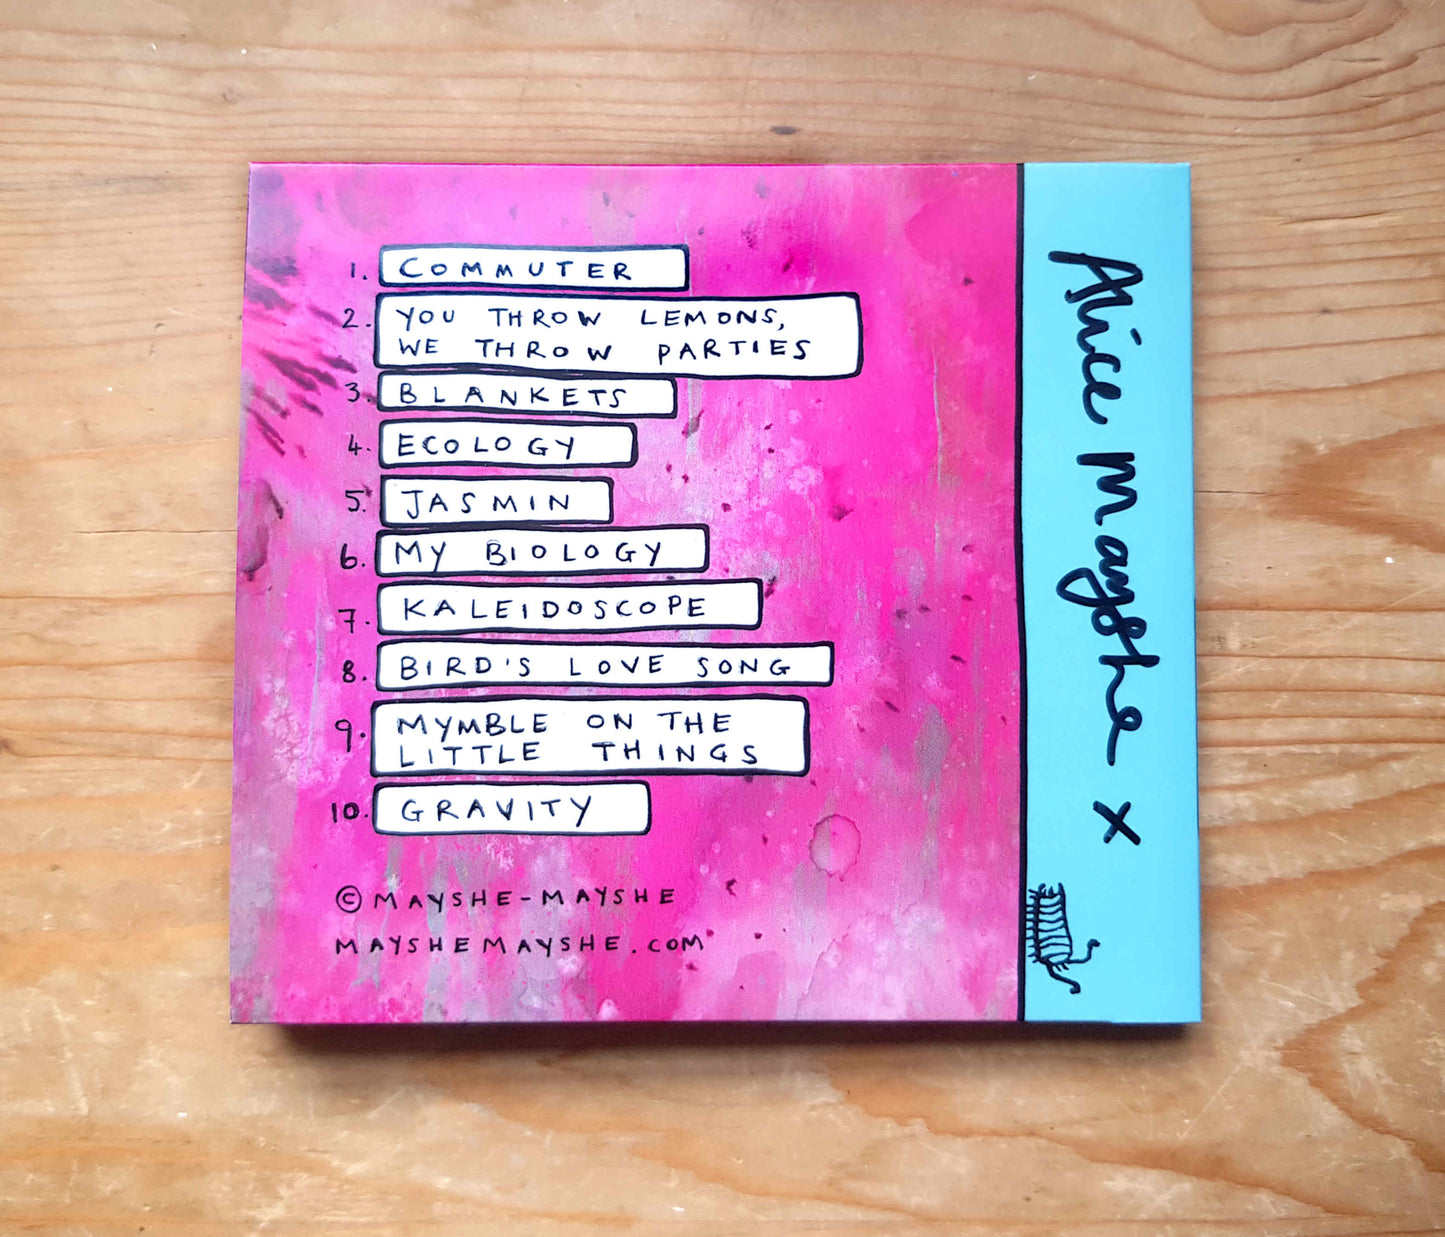 1. COMMUTER
2. YOU THROW LEMONS,
WE THROW PARTIES
3. BLANKETS
4. ECOLOGY
5. JASMIN
6. MY BIOLOGY
7. KALEIDOSCOPE
8. BIRD'S LOVE SONG
9. MYMBLE ON THE
LITTLE THINGS
10. GRAVITY
© MAYSHE-MAYSHE
MAYSHEMAYSHE.COM
Alice Mayshe x